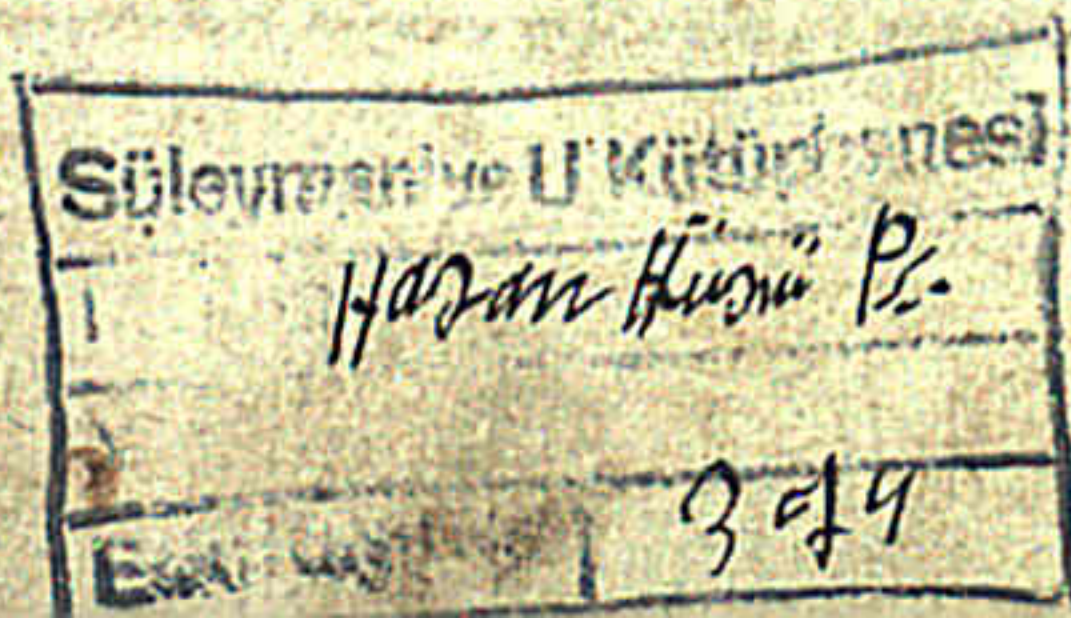 Süleymaniye U Kütüphanesi
Hasan Hüsnü Pş.
374